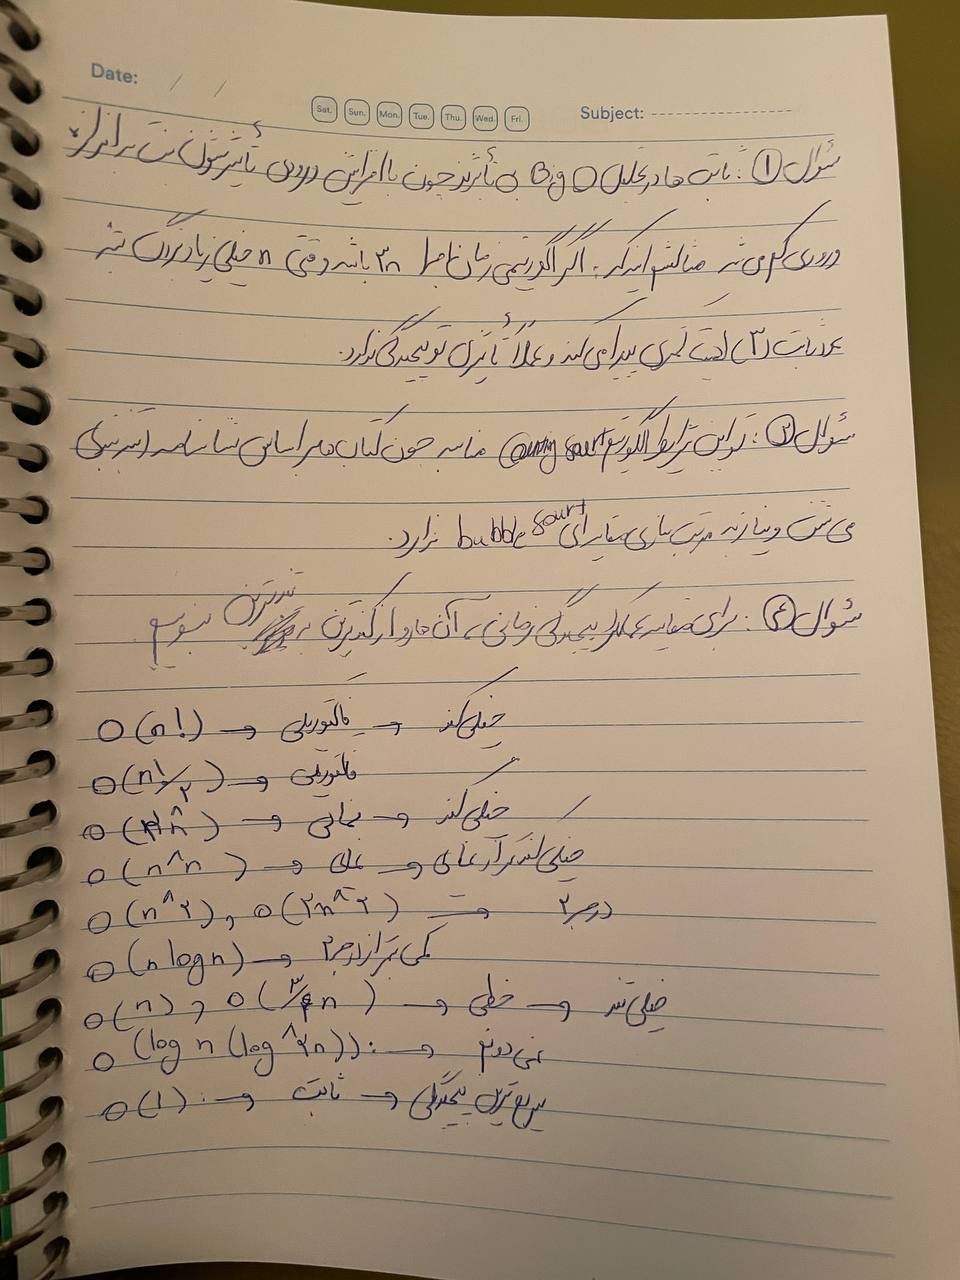 Date: / /
Sat. Sun. Mon. Tue. Thu. Wed. Fri.
Subject:
سؤال ۱: ثابت ها در تحلیل Big O بی تأثیرند چون با افزایش ورودی تأثیرشون نسبت به اندازه
ورودی کم می شه مثالش اینکه: اگر الگوریتمی زمان اجرا ۳n باشد وقتی n خیلی زیاد بزرگ بشه
عدد ثابت (۳) اهمیت کمتری پیدا می کند و عملاً تأثیری تو پیچیدگی نداره.
سؤال ۲: تو این شرایط الگوریتم sourt مناسبه چون کتاب ها بر اساس شناسنامه
می شن و نیاز به مرتب سازی مقایسه ای bubble sourt ندارد.
سؤال ۴: برای مقایسه عملکرد پیچیدگی زمانی، آن ها رو از کندترین به تندترین
O(n!) → فاکتوریلی → خیلی کند
O(n!/۲) → فاکتوریلی
→ نمایی → خیلی کند
O(n^n) → نمایی → خیلی کندتر از نمایی
O(n^۲), O(۲n^۲) → درجه ۲
O(n logn) → کمی بهتر از درجه ۲
O(n), O(۳/۴n) → خطی → خیلی تند
O(log n (log^۲n)): → نمی دونم
O(1): → ثابت → سریع ترین پیچیدگی